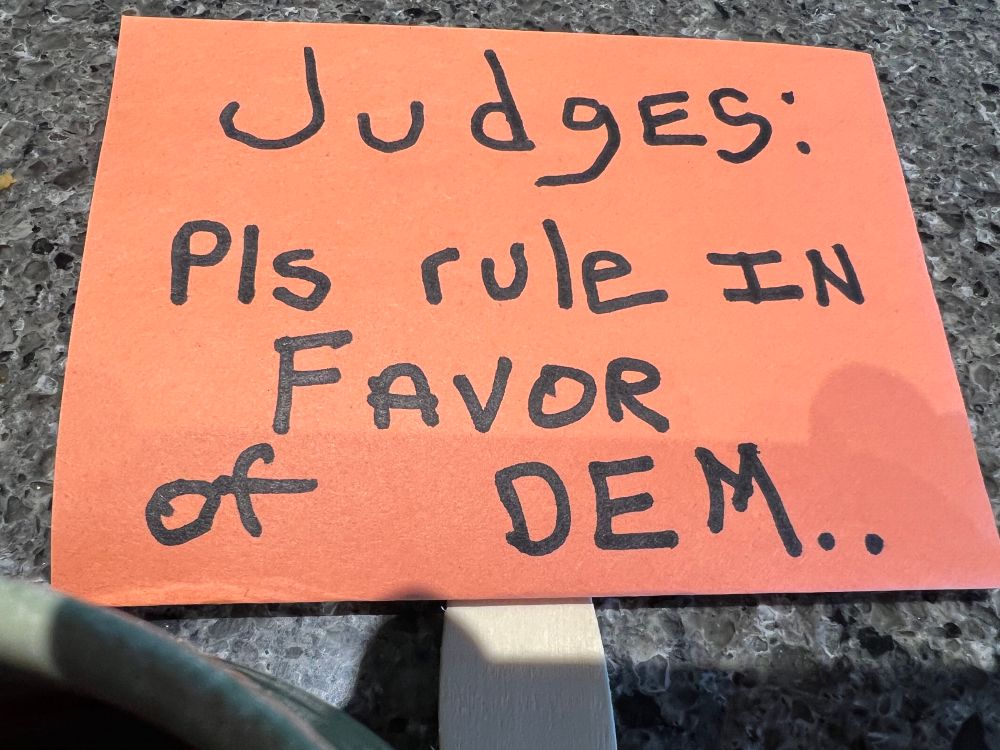 JudgES:
Pls rule IN
FAVOR
of DEM..